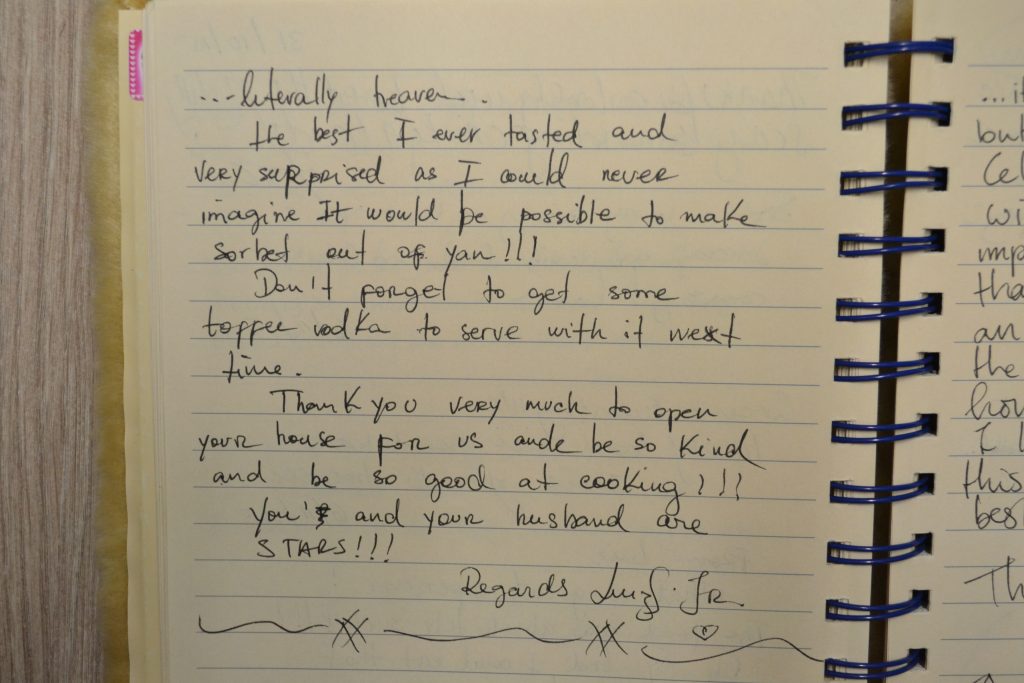 ...literally heaven.
the best I ever tasted and
very surprised as I could never
imagine It would be possible to make
sorbet out of yan!!!
Don't forget to get some
toffee vodka to serve with it next
time.
Thank you very much to open
your house for us ande be so kind
and be so good at cooking!!!
You and your husband are
STARS!!!
Regards Luiz JR.
...it
but
Cel
wi
imp
tha
an
the
hou
I
this
bes
Th